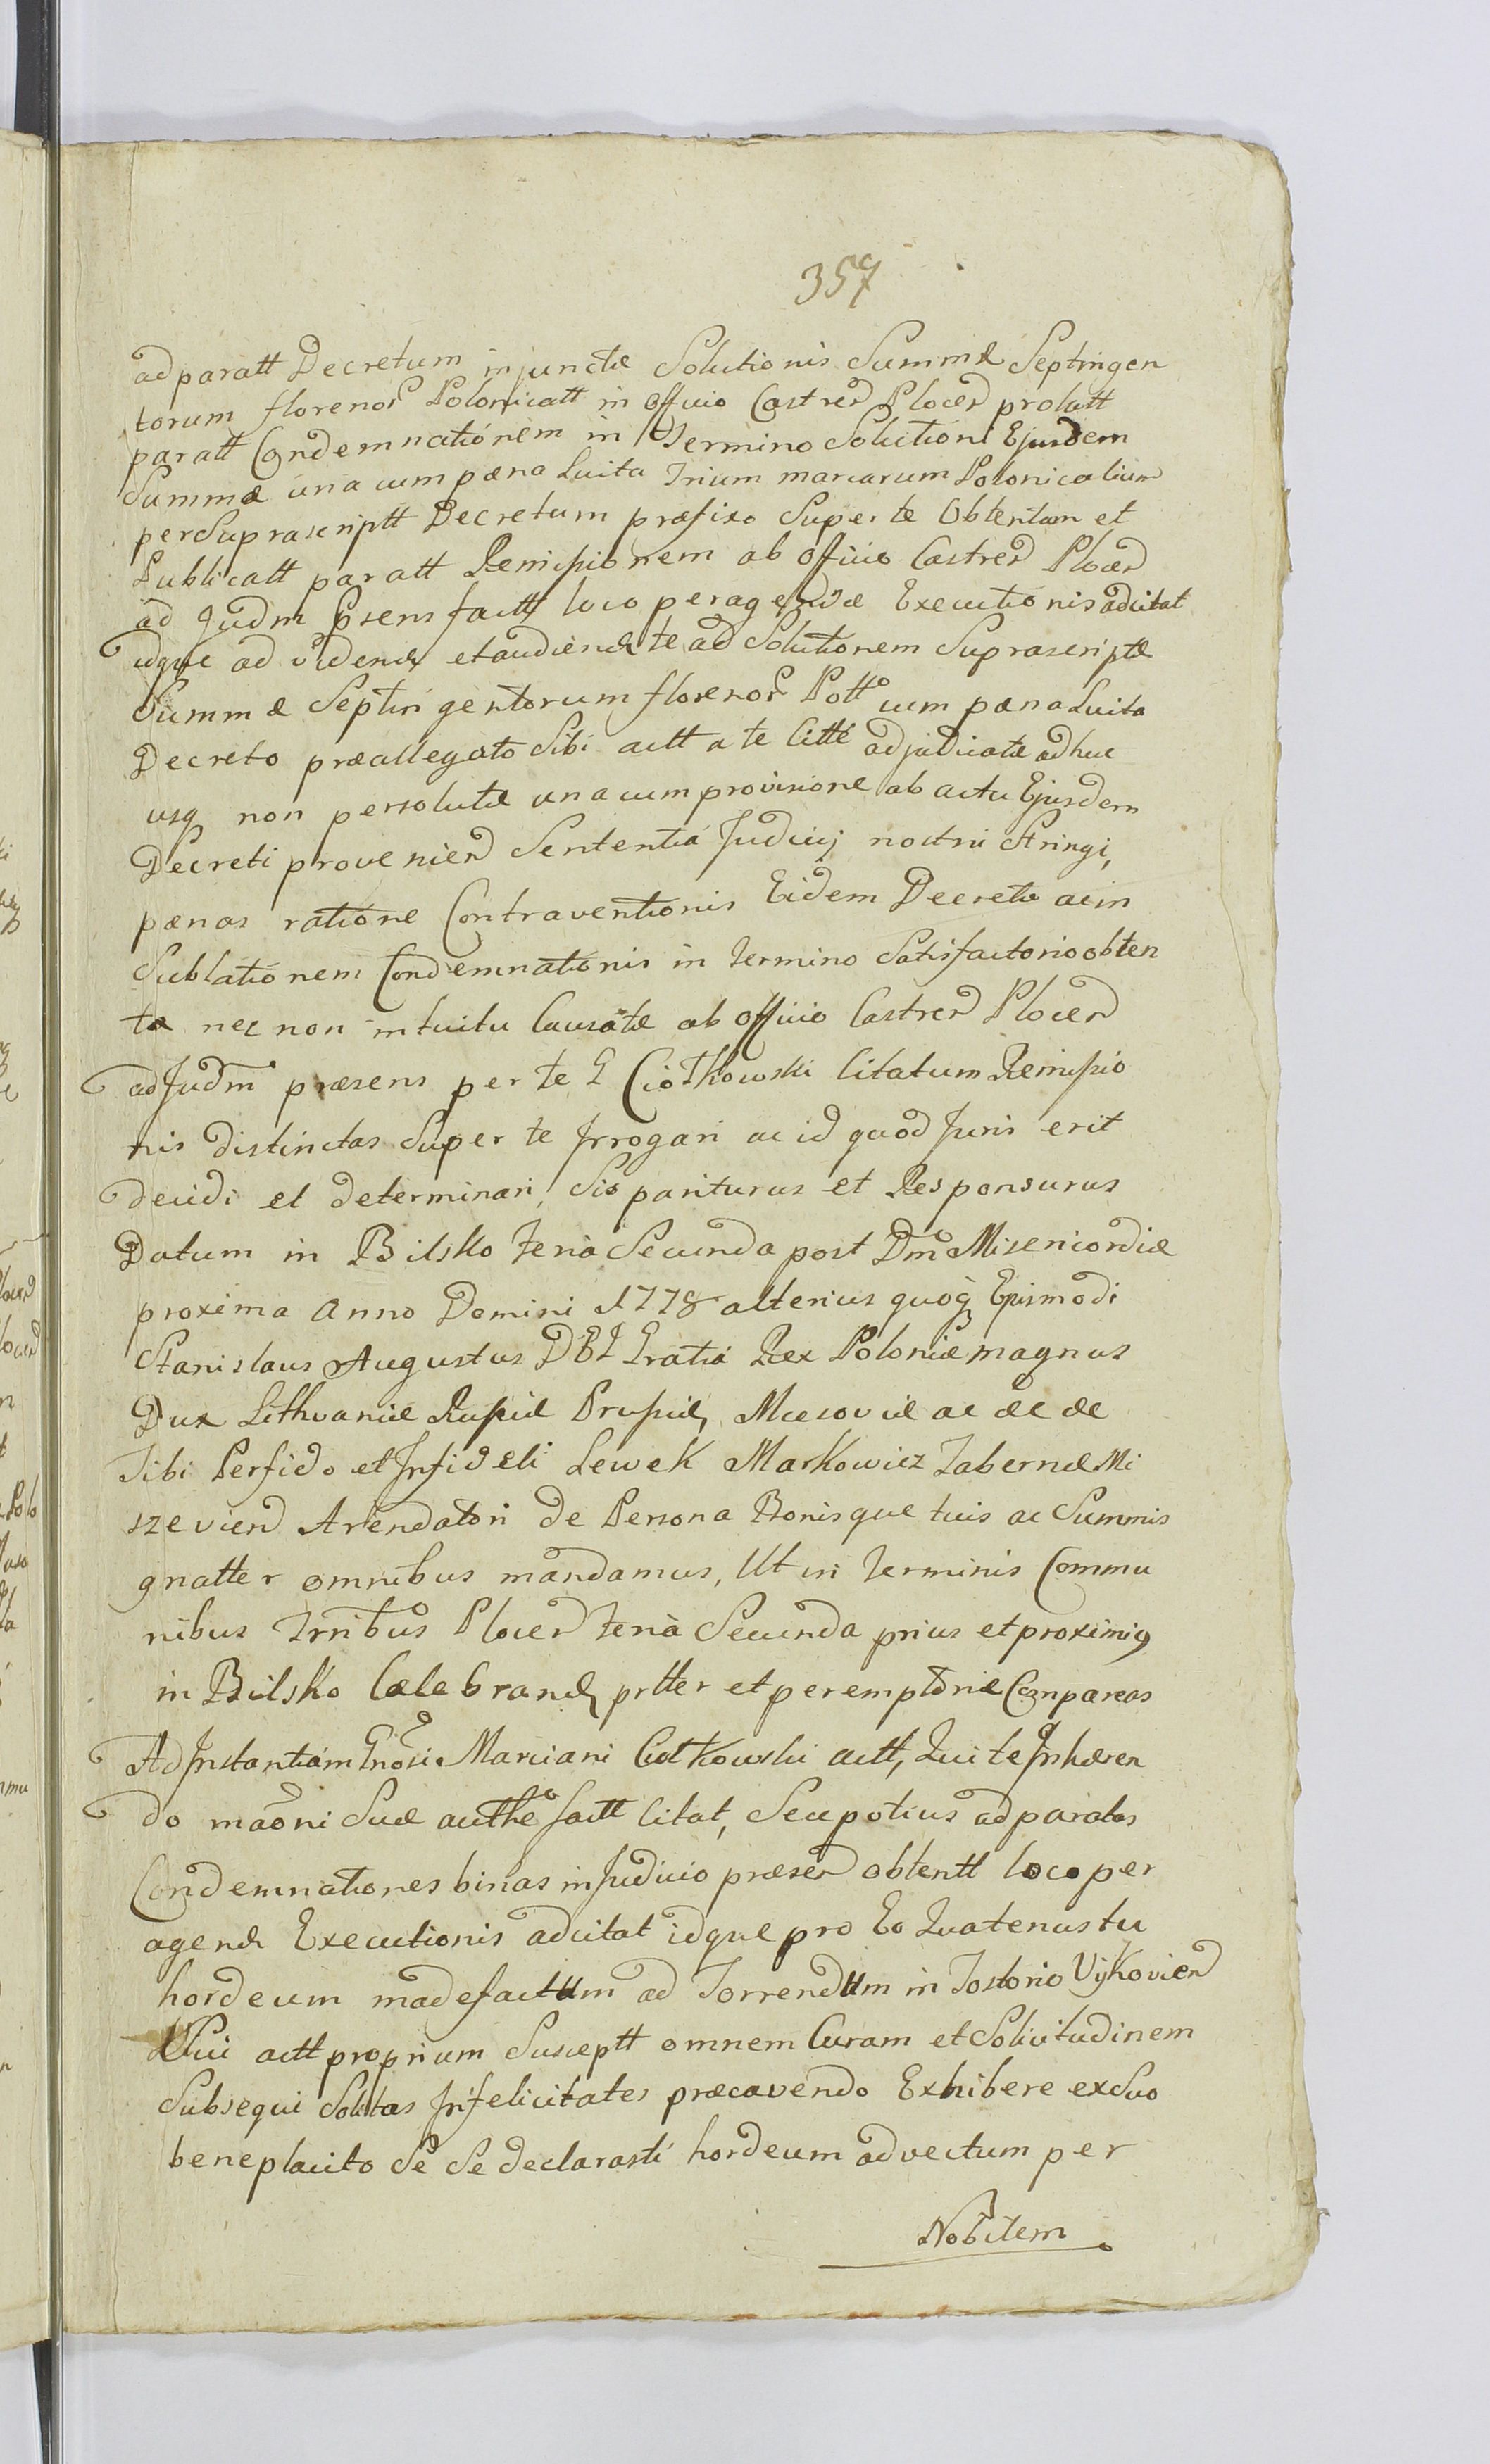 357
adparatt Decretum injunctæ Solutionis Summæ Septringen
torum florenor Polonicatt in Officio Castreñ Ploceñ prolatt
paratt Condemnationem in Termino Solutioni Ejusdem
Summæ una cum pæna Luita Trium marcarum Polonicalium
per Suprascriptt Decretum præfixo Super te Obtentam et
Publicatt paratt Remissionem ab Officio Castreñ Ploceñ
ad Judm Psens factt loco peragendæ Executionis adcitat
idque ad videnđ et audienđ te ad Solutionem Suprascriptæ
Summæ Septingentorum florenor Poltt cum pæna Luita
Decreto præallegato Sibi actt a te Citte adjudicatæ adhuc
usq non persolutæ una cum provisione ab actu Ejusdem
Decreti provenieñ Sententiá Judicij nostri Stringi,
pænas ratióne Contraventionis Eidem Decreto ac in
Sublationem Condemnationis in termino Satisfactorio obten
ta nec non intuitu Causatæ ab Officio Castreñ Ploceñ
ad Judm præsens per te G Ciotkowski Citatum Remissio
nis distinctas Super te Irrogari ac id quod Juris erit
decidi et determinari, Sis pariturus et Responsurus
Datum in Bilsko feria Secunda post Dm̃ Misericordiæ
proxima Anno Domini 1778 alterius quoq Ejusmodi
Stanislaus Augustus DEI Gratiá Rex Poloniæ magnus
Dux Lithvaniæ Russiæ Prussiæ, Masoviæ ac &c &c
Tibi Perfido et Infideli Lewek Markowicz Tabernæ Mi
szevieñ Arendatori de Persona Bonisque tuis ac Summis
gnatter omnibus mandamus, Ut in terminis Commu
nibus Trribus Ploceñ feria Secunda prius et proximiq
in Bilsko Cælebranđ prtter et peremptorie Compareas
Ad Instantiam Gnosi Marciani Ciotkowski actt, Qui te Inhæren
do maoni Suæ authe factt Citat, Seu potius ad paratas
Condemnationes binas in Judicio præseñ obtentt loco per
agenđ Executionis adcitat idque pro Eo Quatenus tu
hordeum madefactum ad Torrendum in Tostorio Vijkovieñ
Usui actt proprium Susceptt omnem Curam et Solicitudinem
Subsequi Solitas Infelicitates præcavendo Exhibere ex Suo
beneplacito Se Se declarasti hordeum advectum per
Nobilem